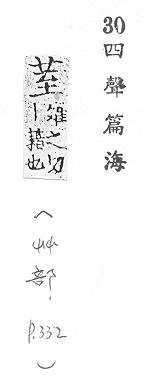 30 四聲篇海
荎
雉之切
丨藉也
(艸部.P.332)